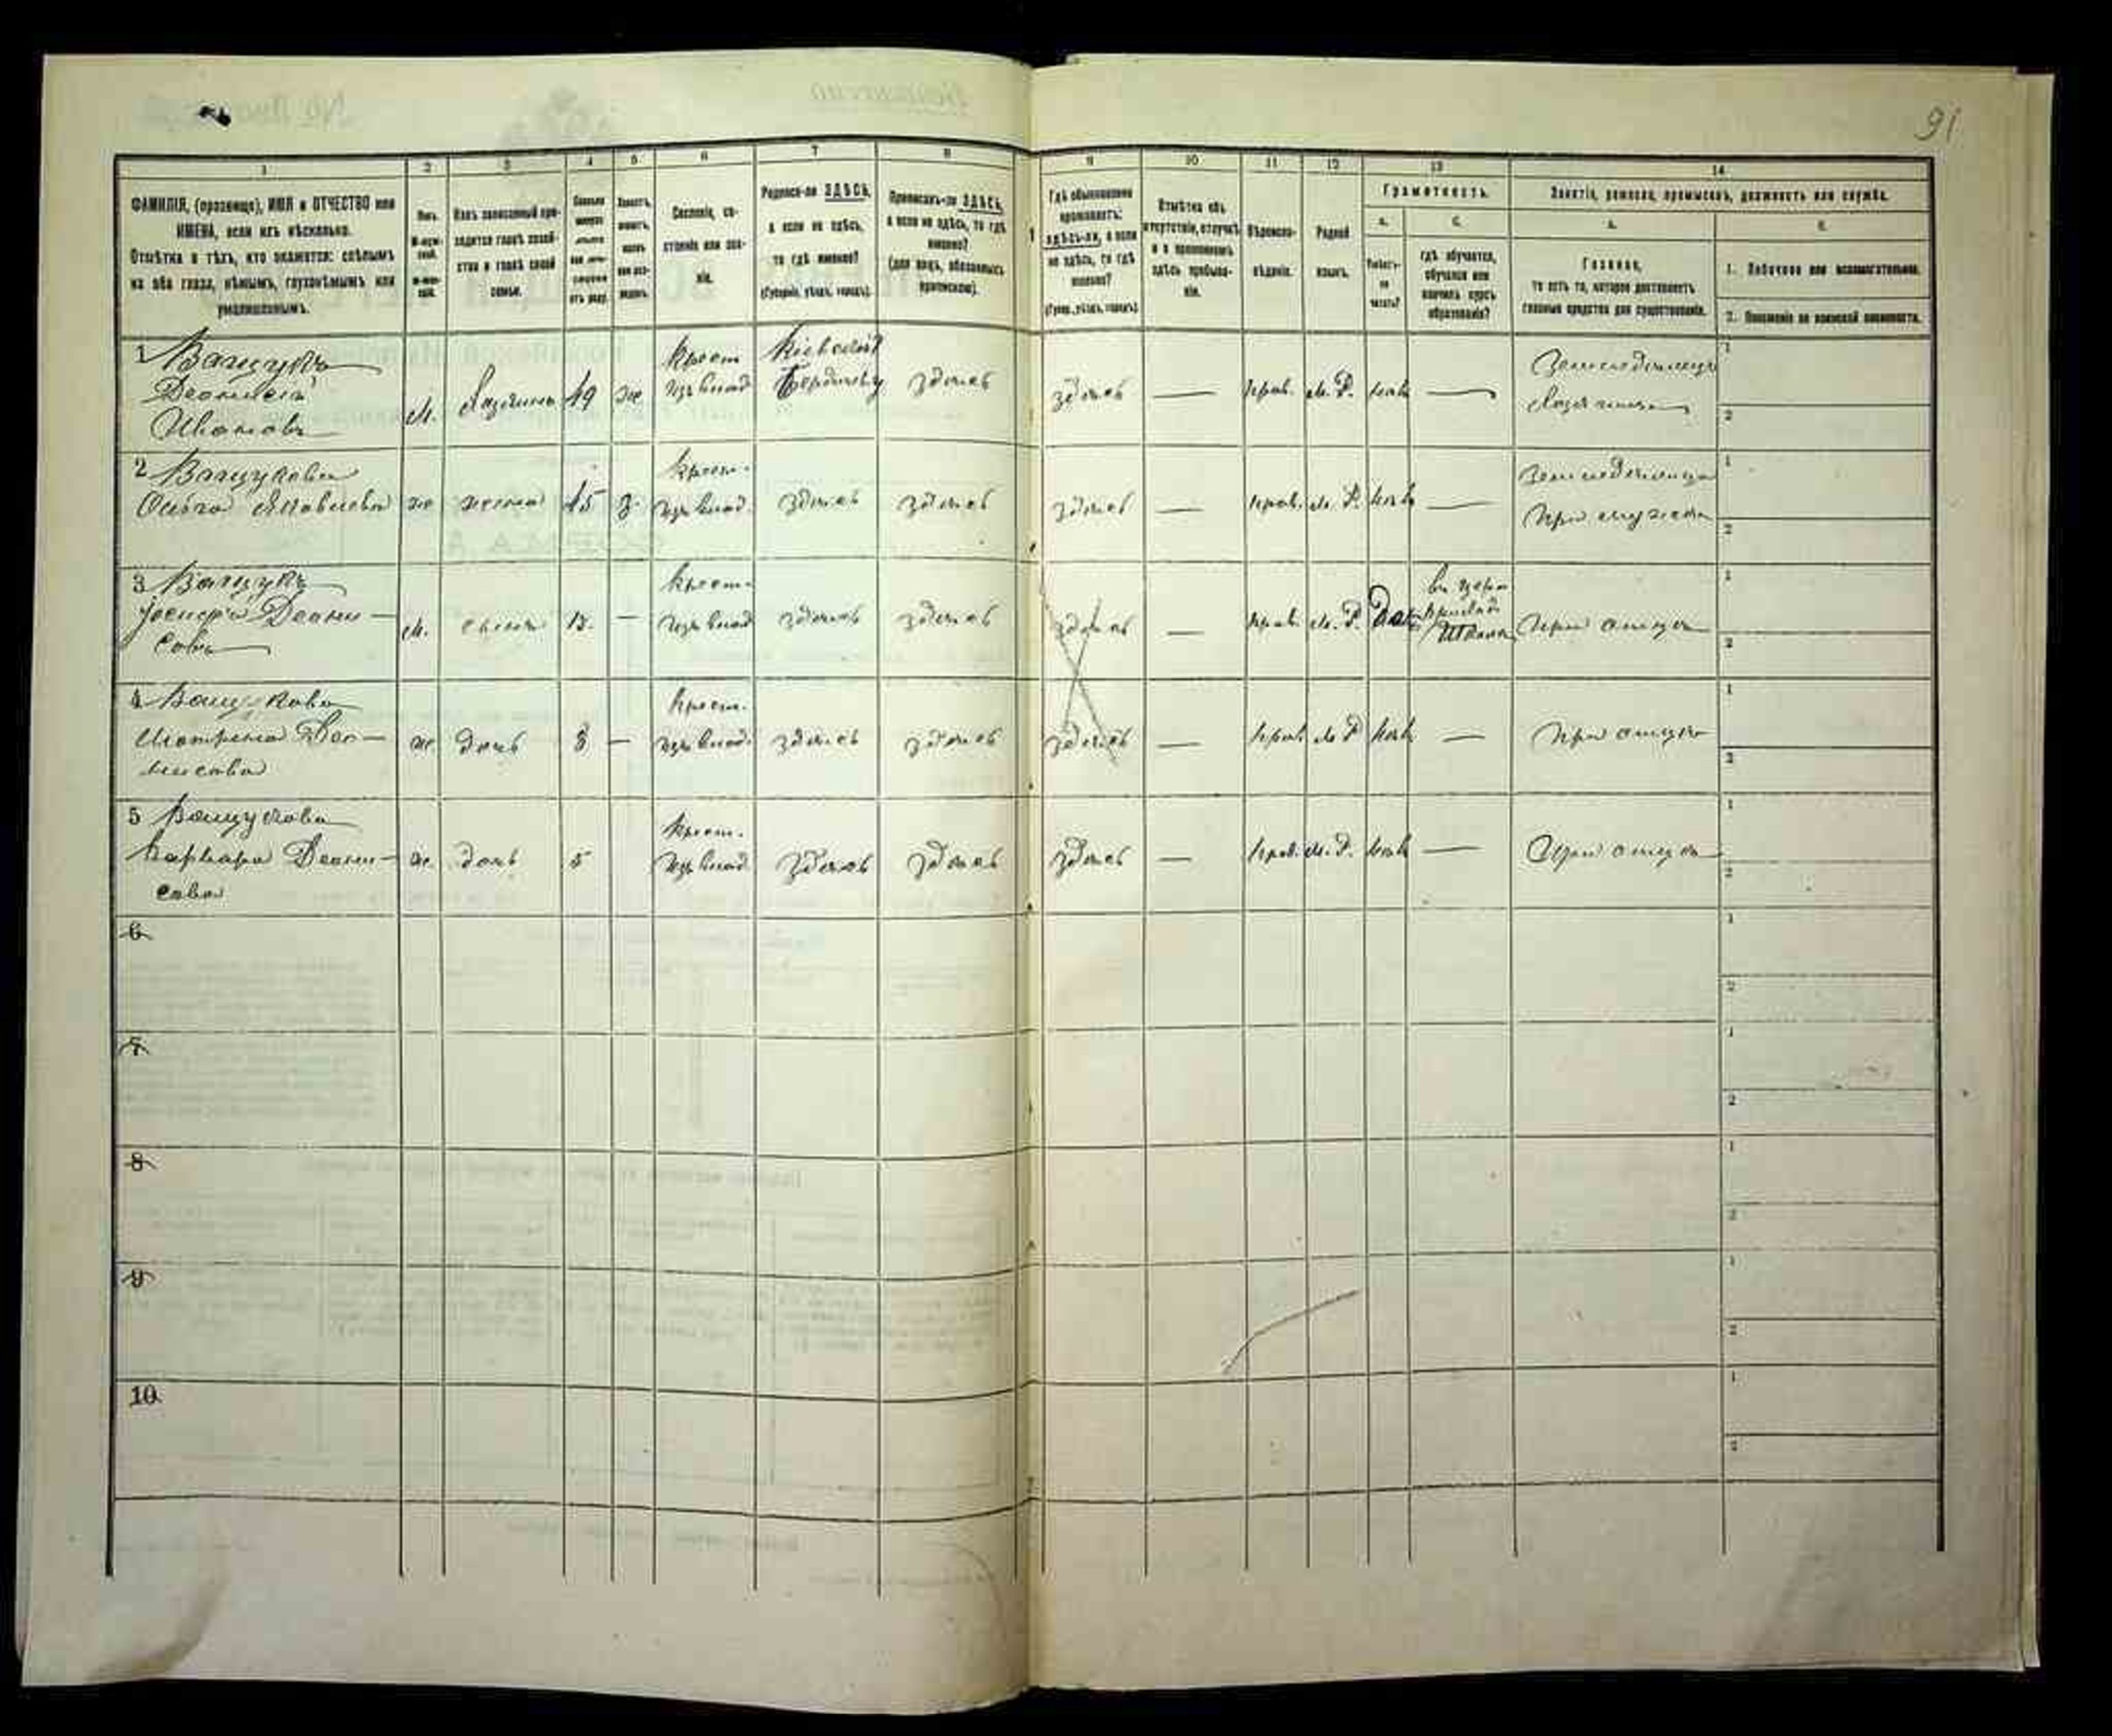 91
1 2 3 4 5 6 7 8 9 10 11 12 13 14
ФАМИЛІЯ, (прозвище), ИМЯ и ОТЧЕСТВО или
ИМЕНА, если ихъ нѣсколько.
Отмѣтка о тѣхъ, кто окажется: слѣпымъ
на оба глаза, нѣмымъ, глухонѣмымъ или
умалишеннымъ.
Полъ.
М-муж-
ской.
Ж-жен-
скій.
Какъ записанный при-
ходится главѣ хозяй-
ства и главѣ своей
семьи.
Сословіе, со-
стояніе или зва-
ніе.
Родился-ли ЗДѢСЬ,
а если не здѣсь,
то гдѣ именно?
(Губернія, уѣздъ, городъ).
Приписанъ-ли ЗДѢСЬ,
а если не здѣсь, то гдѣ
именно?
(для лицъ, обязанныхъ
припискою).
Гдѣ обыкновенно
проживаетъ:
здѣсь-ли, а если
не здѣсь, то гдѣ
именно?
(Губер., уѣздъ, городъ)
Отмѣтка объ
отсутствіи, отлучкѣ
и о временномъ
здѣсь пребыва-
ніи.
Вѣроиспо-
вѣданіе.
Родной
языкъ.
Грамотность.
а. б.
Умѣетъ-
ли
читать?
гдѣ обучается,
обучался или
кончилъ курсъ
образованія?
Занятіе, ремесло, промыселъ, должность или служба.
а. б.
Главное,
то есть то, которое доставляетъ
главныя средства для существованія.
1. Побочное или вспомогательное.
2. Положеніе по воинской повинности.
1 Ващукъ
Деонисій
Ивановъ
м. Хозяинъ 49 ж
крест
изъ влад
Кіевской
Бердичев у
здѣсь здѣсь — прав. М. Р. нѣтъ —
Земледѣлецъ
Хозяинъ
1
2
2 Ващукова
Ольга Яковлева
ж жена 45 з.
крест.
изъ влад.
здѣсь здѣсь здѣсь — прав. М. Р. нѣтъ —
Земледѣлица
При мужѣ
1
2
3 Ващукъ
Іосифъ Деони-
совъ
м. сынъ —
крест.
изъ влад
здѣсь здѣсь здѣсь — прав. М. Р. Да
въ церк
приход
Школѣ
При отцѣ
1
2
4 Ващукова
Матрена Део-
нисова
ж. дочь 8 —
крест.
изъ влад.
здѣсь здѣсь здѣсь — прав. М. Р. нѣтъ — При отцѣ
1
2
5 Ващукова
Варвара Деони-
сова
ж. дочь 5
крест.
изъ влад.
здѣсь здѣсь здѣсь — прав. М. Р. нѣтъ — При отцѣ
1
2
6
1
2
7
1
2
8
1
2
9
1
2
10
1
2